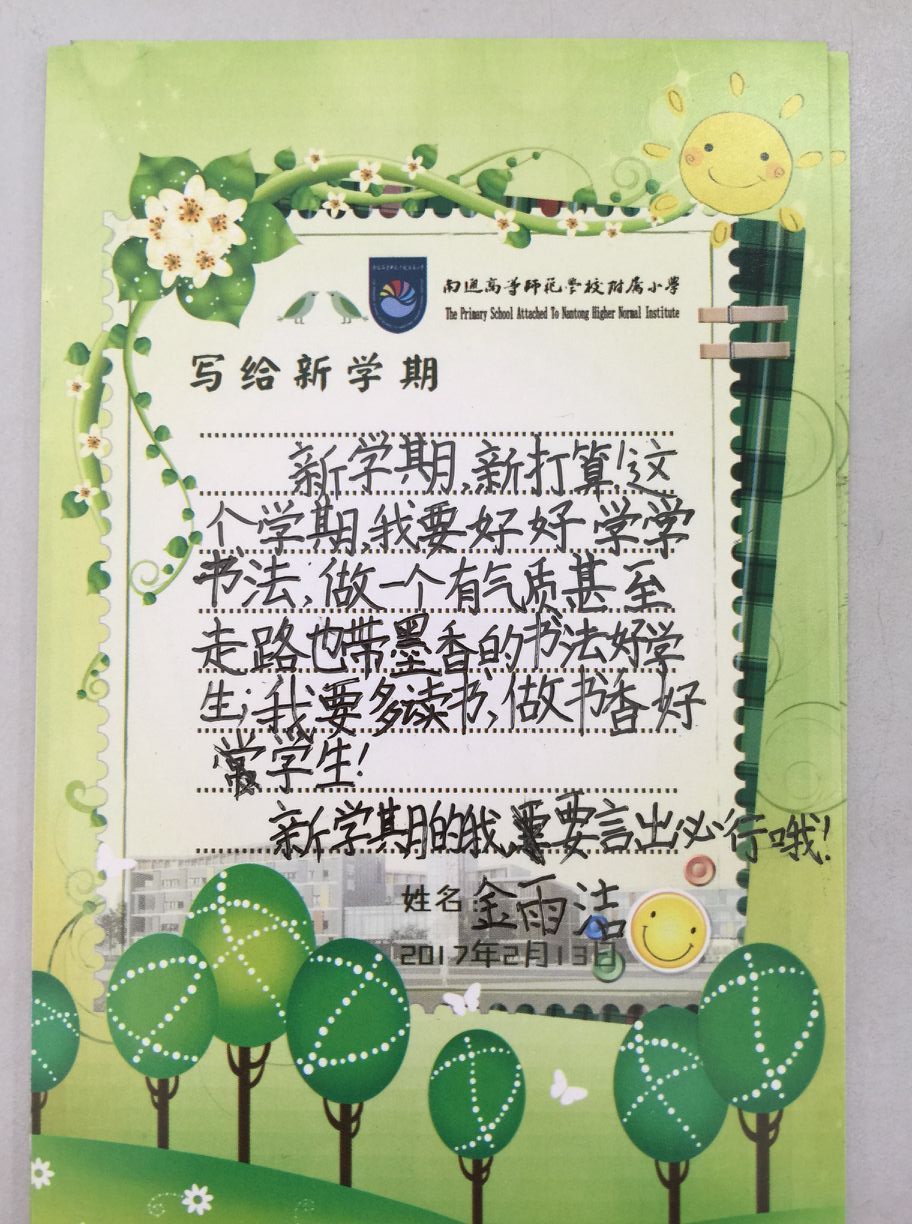 南通高等师范学校附属小学
The Primary School Attached To Nantong Higher Normal Institute
写给新学期
新学期,新打算!这
个学期,我要好好学学
书法,做一个有气质甚至
走路也带墨香的书法好学
生;我要多读书,做书香好
学生!
新学期的我,要言出必行哦!
姓名:金雨洁
2017年2月13日